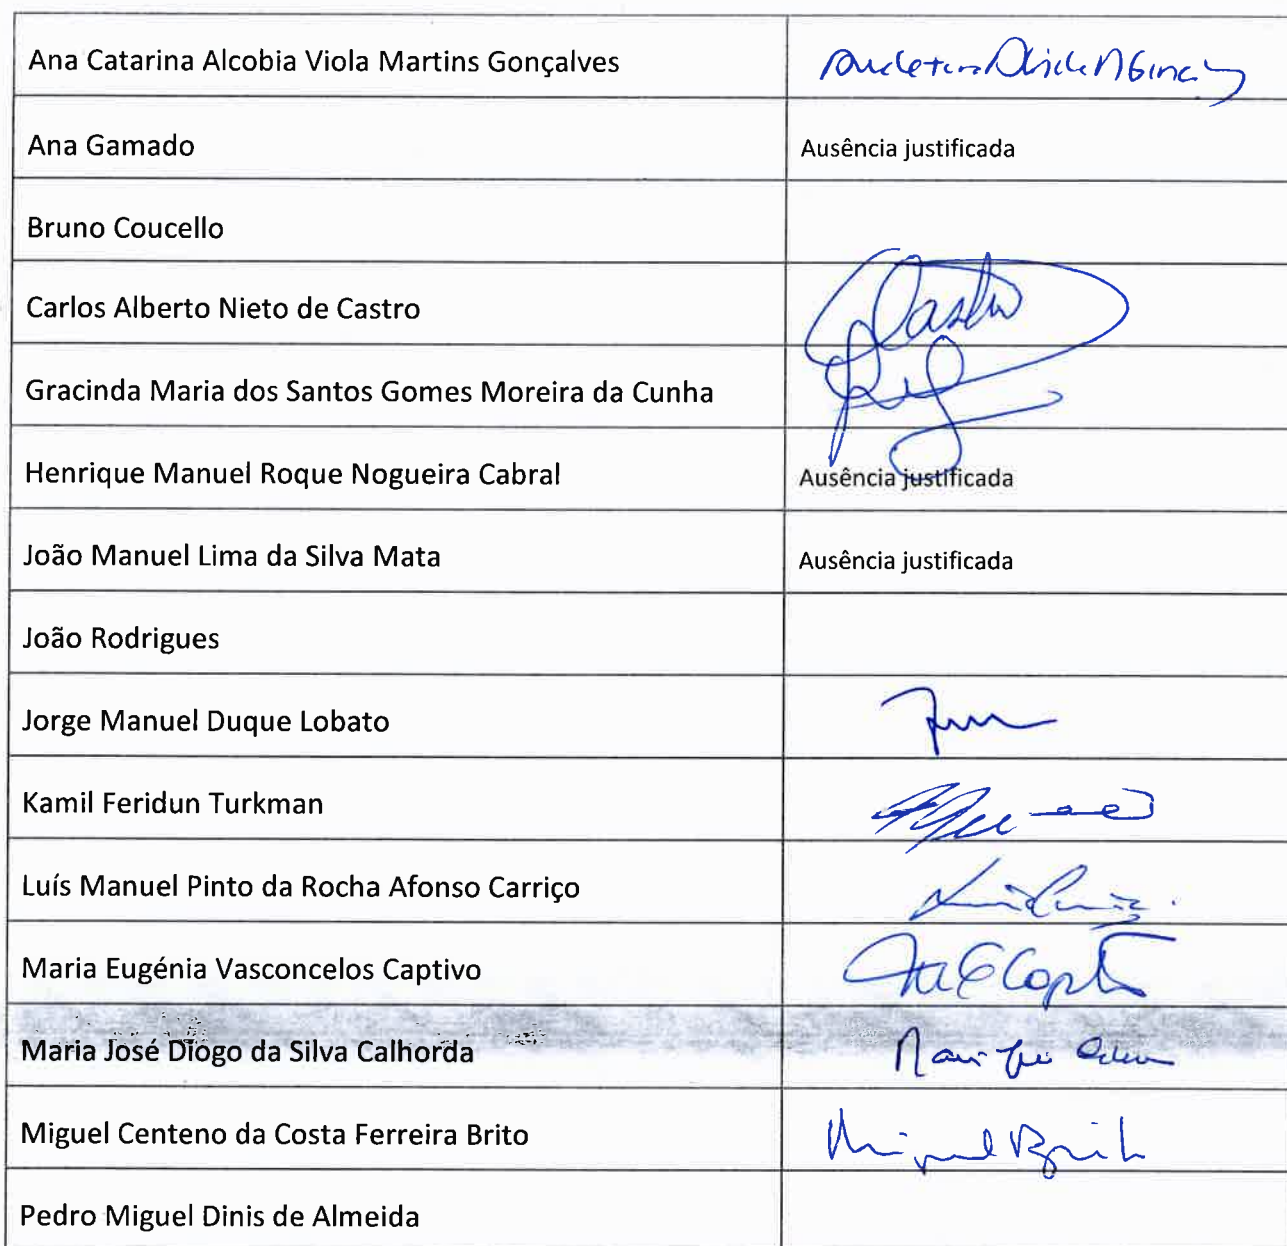 Ana Catarina Alcobia Viola Martins Gonçalves
Ana Gamado Ausência justificada
Bruno Coucello
Carlos Alberto Nieto de Castro Castro
Gracinda Maria dos Santos Gomes Moreira da Cunha
Henrique Manuel Roque Nogueira Cabral Ausência justificada
João Manuel Lima da Silva Mata Ausência justificada
João Rodrigues
Jorge Manuel Duque Lobato
Kamil Feridun Turkman
Luís Manuel Pinto da Rocha Afonso Carriço
Maria Eugénia Vasconcelos Captivo
Maria José Diogo da Silva Calhorda
Miguel Centeno da Costa Ferreira Brito Miguel Brito
Pedro Miguel Dinis de Almeida